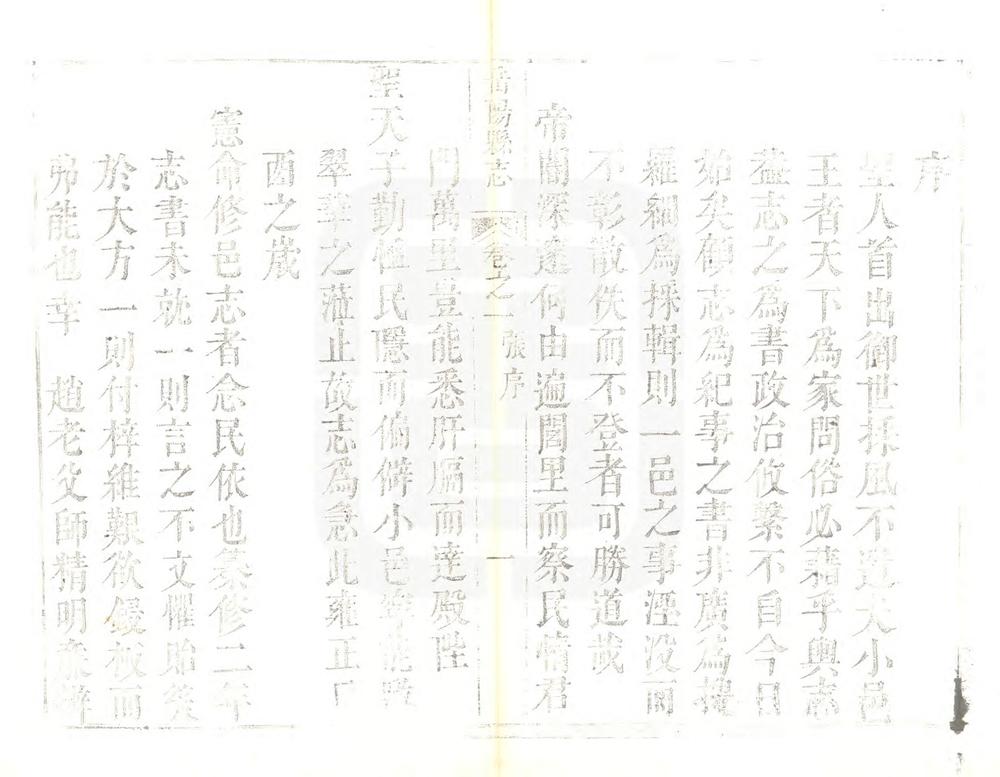 序
聖人首出御世採風不遺大小邑
王者天下為家問俗必藉乎輿志
蓋志之為書政治攸繫不自今日
始矣顧志為紀事之書非廣為搜
羅細為採輯則一邑之事湮没而
不彰散佚而不登者可勝道哉
帝閽深邃何由遍閭里而察民情君
陽縣志
卷之一
張序
一
門萬里豈能悉肝膈而達殿陛
聖天子勤恤民隱而偏僻小邑
翠華之蒞止故志為急此雍正
酉之歲
憲命修邑志者念民依也纂修二年
志書未就一則言之不文懼貽笑
於大方一則付梓維艱欲鋟板而
弗能也幸 趙老父師精明